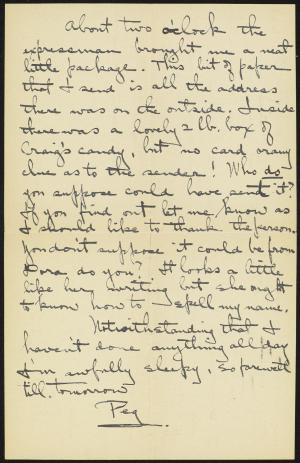 About two o'clock the
expressman brought me a neat
little package. This bit of paper
that I send is all the address
there was on the outside. Inside
there was a lovely 2 lb. box of
Craig's candy, but no card or any
clue as to the sender! Who do
you suppose could have sent it?
If you find out let me know as
I should like to thank the person.
You don't suppose it could be from
Dora do you? It looks a little
like her writing but she ought
to know how to spell my name.
Notwithstanding that I
haven't done anything all day
I'm awfully sleepy, so farewell
till tomorrow
Peg